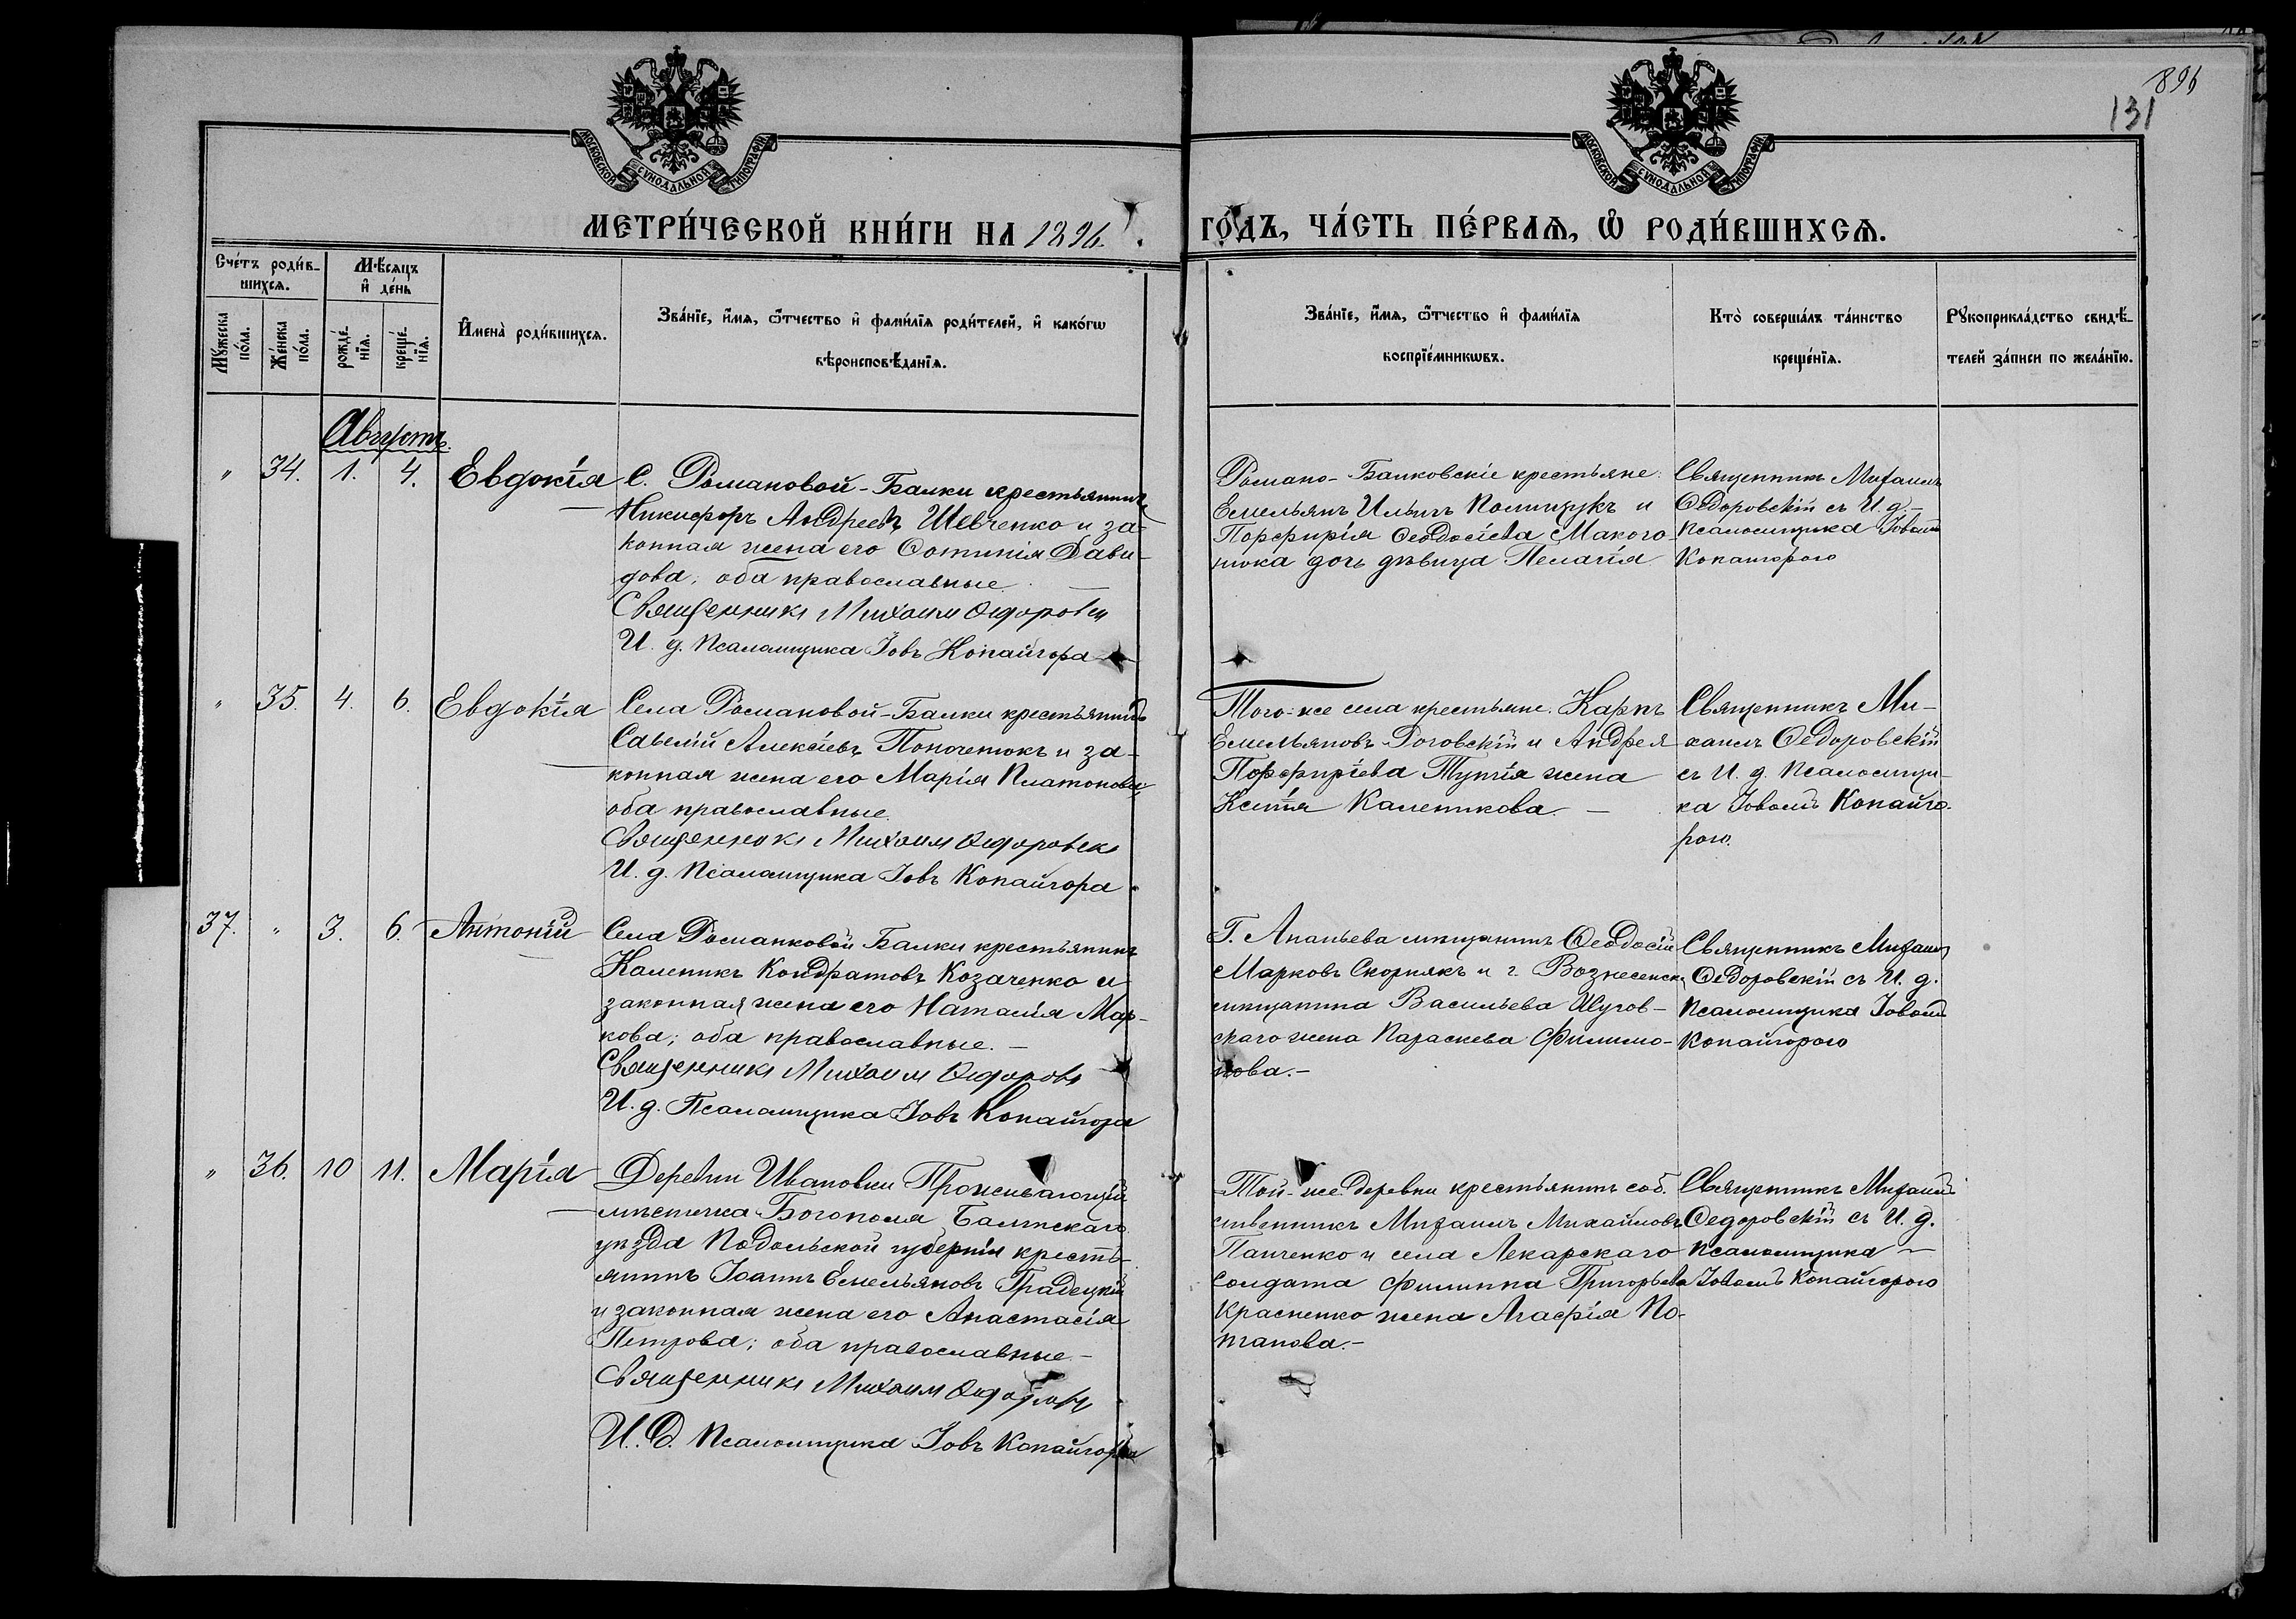 896
131
МОСКОВСКОЙ СѴНОДАЛЬНОЙ ТИПОГРАФІИ
МОСКОВСКОЙ СѴНОДАЛЬНОЙ ТИПОГРАФІИ
МЕТРИ́ЧЕСКОЙ КНИ́ГИ НА 1896.
ГО́ДЪ, ЧА́СТЬ ПЕ́РВАѦ, Ѡ҆ РОДИ́ВШИХСѦ.
Сче́тъ роди́в-
шихсѧ.
Мѣ́сѧцъ
и҆ де́нь
Мꙋ́жеска
по́ла.
Же́нска
по́ла.
рожде́-
нїѧ.
креще́-
нїѧ.
И҆мена̀ роди́вшихсѧ.
Зва́нїе, и҆́мѧ, ѻ҆́тчество и҆ фами́лїѧ роди́телей, и҆ како́гѡ
вѣроисповѣ́данїѧ.
Зва́нїе, и҆́мѧ, ѻ҆́тчество и҆ фами́лїѧ
воспрїе́мникѡвъ.
Кто̀ соверша́лъ та́инство
креще́нїѧ.
Рꙋкоприкла́дство свидѣ́-
телей за́писи по жела́нїю.
Августъ.
" 34. 1. 4. Евдокія
С. Романовой-Балки крестьянинъ
Никифоръ Андреевъ Шевченко и за-
конная жена его Фотинія Дави-
дова; оба православные.
Священникъ Михаилъ Ѳедоровскі
И. д. Псаломщика Іовъ Копайгора
Романо-Балковскіе крестьяне:
Емельянъ Ильинъ Полищукъ и
Порфирія Ѳеодосіева Макого-
нюка дочь дѣвица Пелагія
Священникъ Михаилъ
Ѳедоровскій съ И. д.-
Псаломщика Іовомъ
Копайгорою
" 35. 4. 6. Евдокія
Села Романовой-Балки крестьянинъ
Савелій Алексѣевъ Поночетокъ и за-
конная жена его Марія Платонова;
оба православные.
Священникъ Михаилъ Ѳедоровскі
И. д. Псаломщика Іовъ Копайгора
Того-же села крестьяне: Карпъ
Емельяновъ Роговскій и Андрея
Порфиріева Тупчія жена
Ксенія Каленикова. -
Священникъ Ми-
хаилъ Ѳедоровскій
съ И. д. Псаломщи-
ка Іовомъ Копайго-
рою.
37. " 3. 6. Антоній
Села Романковой Балки крестьянинъ
Каленикъ Кондратовъ Козаченко и
законная жена его Наталія Мар-
кова; оба православные. -
Священникъ Михаилъ Ѳедоровъ
И. д. Псаломщика Іовъ Копайгора
Г. Ананьева мѣщанинъ Ѳеодосій
Марковъ Скорнякъ и г. Вознесенска
мѣщанина Васильева
скаго жена Параскева Филимо-
нова.-
Священникъ Михаилъ
Ѳедоровскій съ И. д.
Псаломщика Іовомъ
Копайгорою
" 36. 10 11. Марія
Деревни Ивановки Проживающій
мѣстечка Богополя Балтскаго
уѣзда Подольской губерніи кресть-
янинъ Іоаннъ Емельяновъ Градецкій
и законная жена его Анастасія
Петрова; оба православные-
Священникъ Михаилъ Ѳедоровъ
И. Д. Псаломщика Іовъ Копайгора
Той-же деревни крестьянинъ соб-
ственникъ Михаилъ Михайловъ
Панченко и села Лекарскаго
солдата Филиппа Григорьева
Красненко жена Агафія По-
тапова.-
Священникъ Михаилъ
Ѳедоровскій съ И. д.
Псаломщика -
Іовомъ Копайгорою